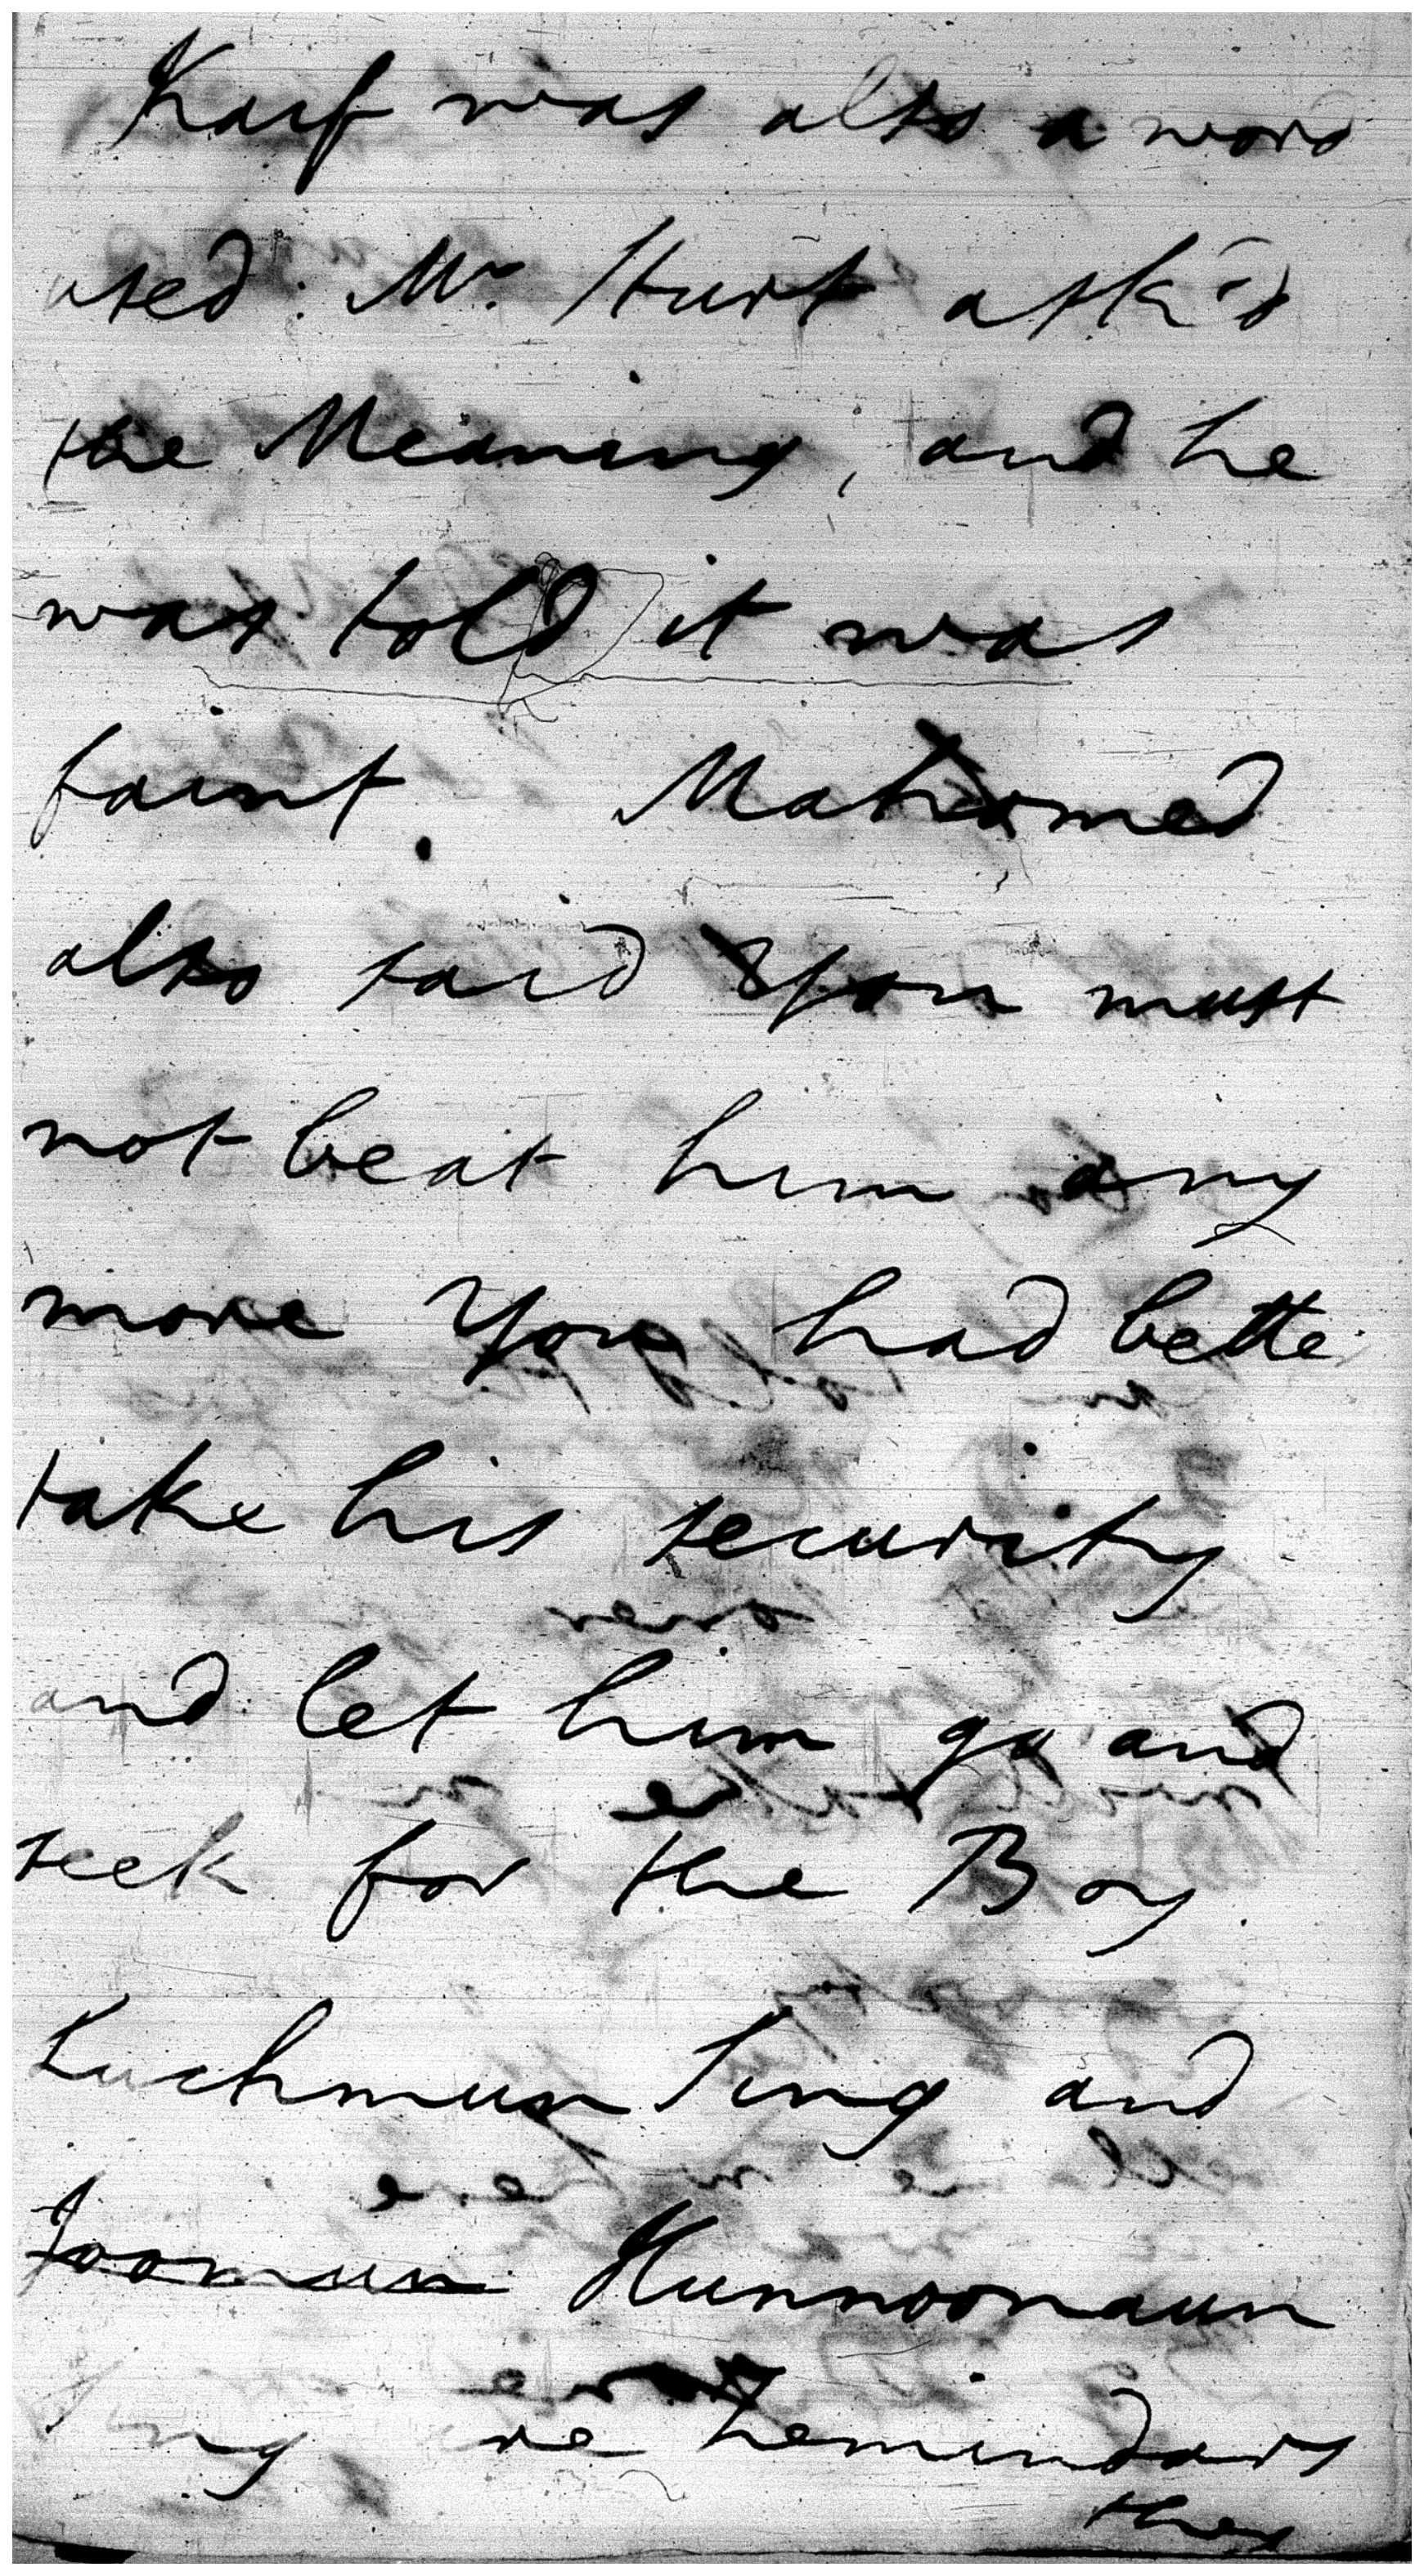 Karf was also a word
used: Mr. Hurst ask'd
the Meaning, and he
was told it was
faint. Mahomed
also said You must
not beat him any
more You had better
take his security
and let him go and
seek for the Boy.
Luchmun Sing and
Joomun Hunnoomaun
Sing are Zemindars
they